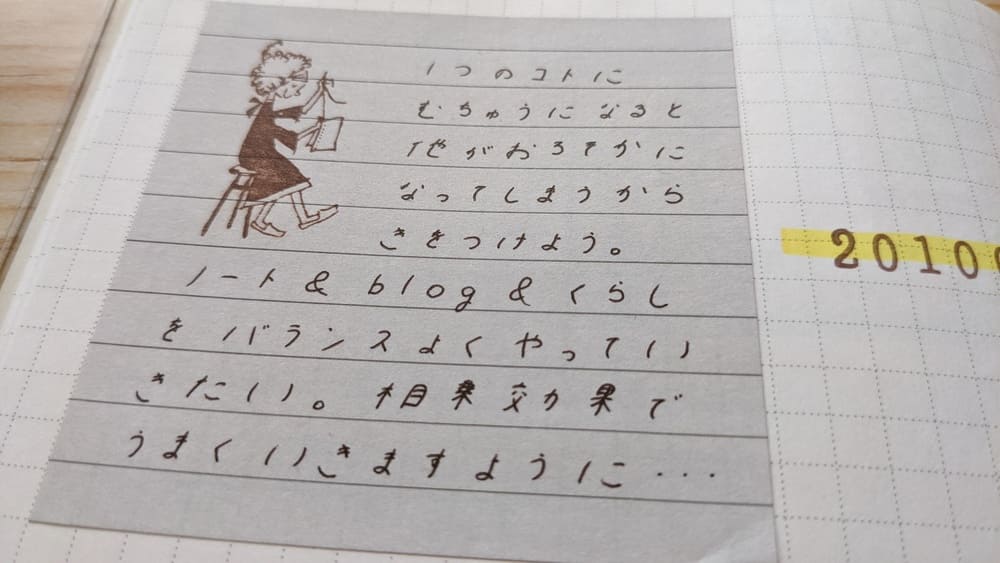 1つのコトに
むちゅうになると
他がおろそかに
なってしまうから
きをつけよう。
ノート & blog & くらし
をバランスよくやってい
きたい。相乗効果で
うまくいきますように・・・
2010